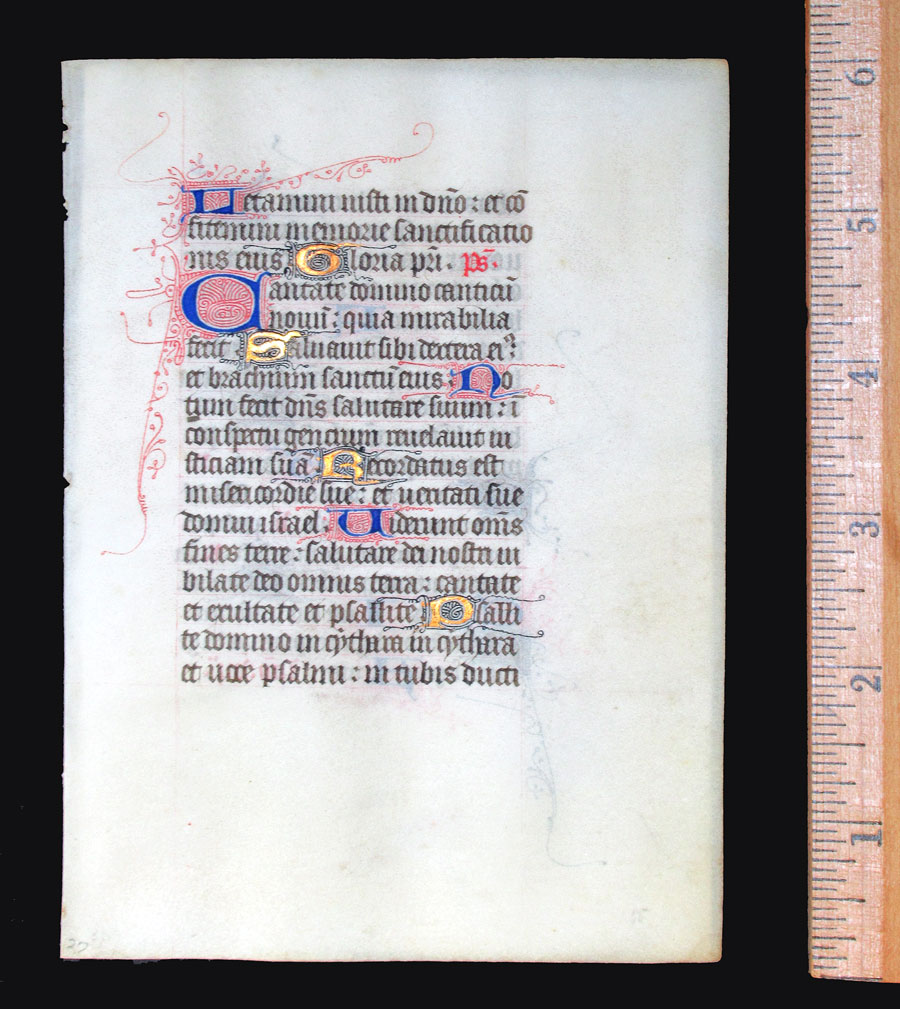 Letamini iusti in dño : et cō
fitemini memorie sanctificatio
nis eius Gloria pri . ps.
Cantate domino canticū
nouū : quia mirabilia
fecit . Saluauit sibi dextera ei9
et brachium sanctū eius . No
tum fecit dns salutare suum : ī
conspectu gencium reuelauit iu
sticiam suā Recordatus est
misericordie sue : et ueritati sue
domui israel . Uiderunt om̄s
fines terre : salutare dei nostri iu
bilate deo omnis terra : cantate
et exultate et psallite Psalli
te domino in cythara in cythara
et uoce psalmi : in tubis ducti
6
5
4
3
2
1